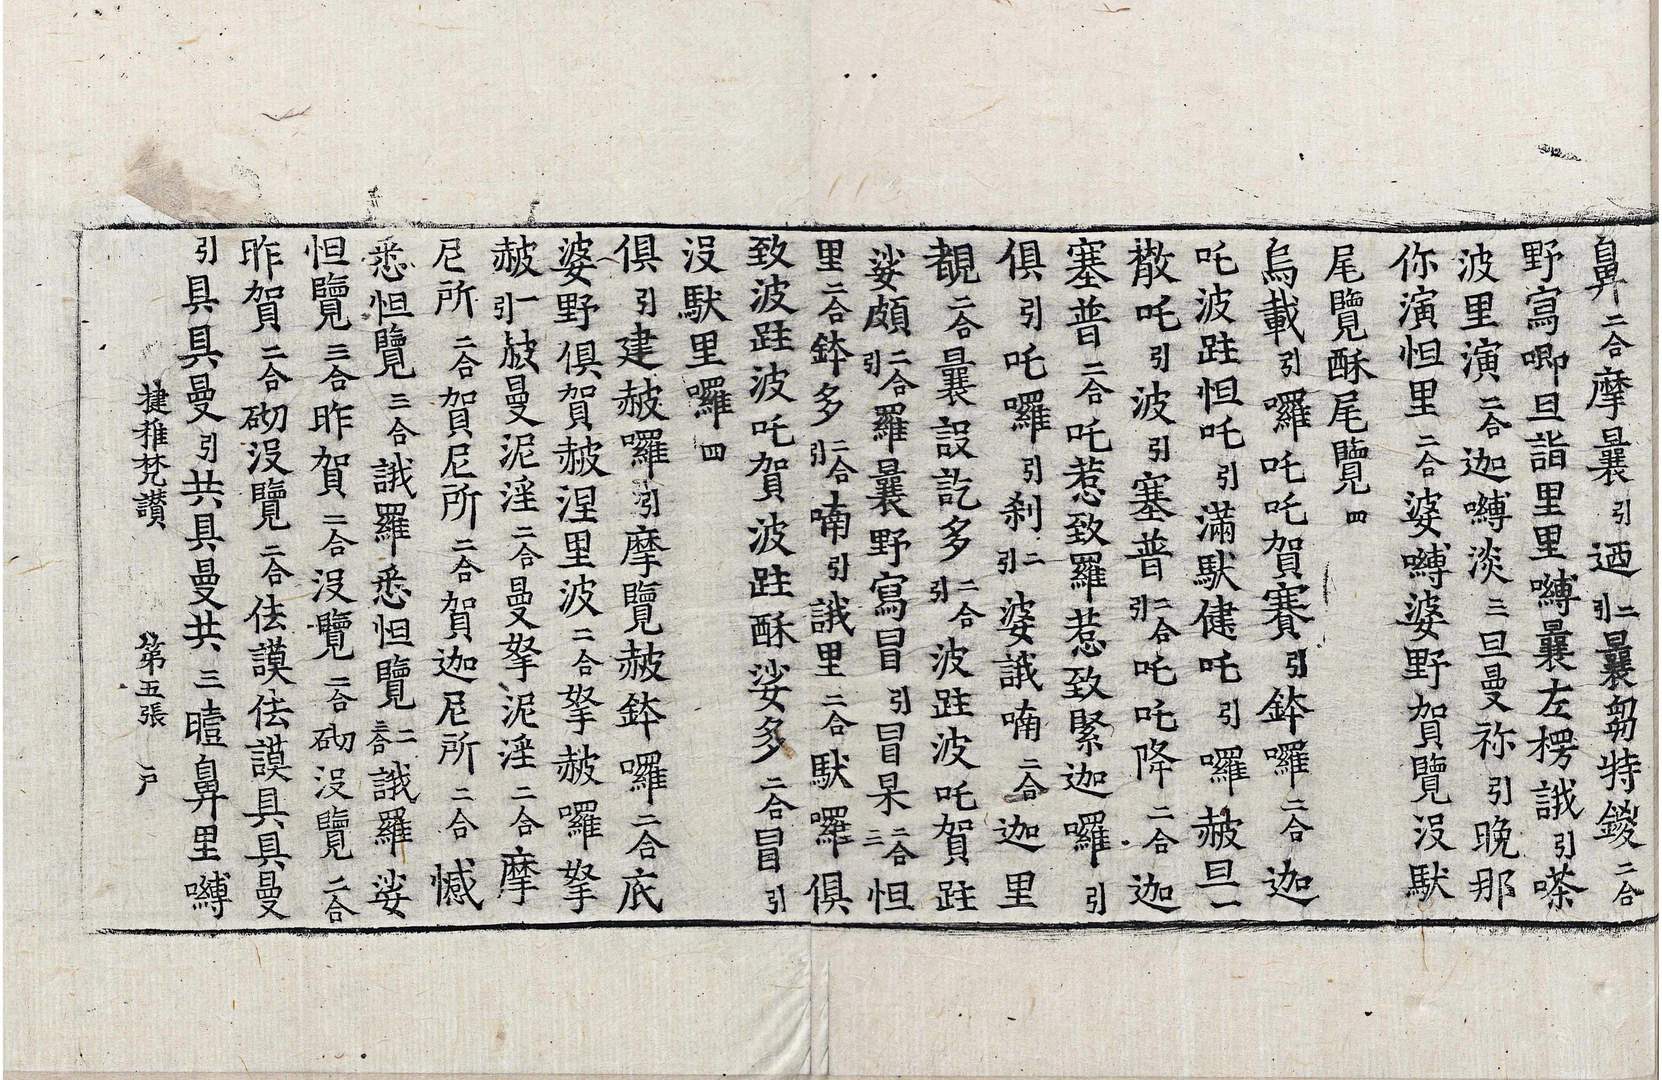 鼻二合摩曩引迺二引曩芻特鑁二合
野寫唧旦詣里里嚩曩左楞誐引㗎
波里演二合迦嚩淡三旦曼祢引晚那
你演怛里二合婆嚩婆野賀覽沒馱
尾覽酥尾覽四
烏載引囉吒吒賀賽引鉢囉二合迦
吒波跓怛吒引滿馱健吒引囉赦旦一
撒吒引波引塞普二合引吒吒降二合迦
塞普二合吒惹致羅惹致緊迦囉引
俱引吒囉引刹二引婆誐喃二合迦里
覩二合曩設訖多二合引波跓波吒賀跓
娑頗二合引羅曩野寫冒引冒杲二合三怛
里二合鉢多二合引喃引誐里二合馱囉俱
致波跓波吒賀波跓酥娑多二合冒引
沒馱里囉四
俱引建赦囉引摩覽赦鉢囉二合底
婆野俱賀赦涅里波二合拏赦囉拏
赦一引赦曼泥淫二合曼拏泥淫二合摩
尼所二合賀尼所二合賀迦尼所二合憾
悉怛覽三合誐羅悉怛覽二合誐羅娑
怛覽三合昨賀二合沒覽二合砌沒覽二合
昨賀二合砌沒覽二合佉謨佉謨具具曼
引具具曼引共具曼共三曀鼻里嚩
揵稚梵讃 第五張 户